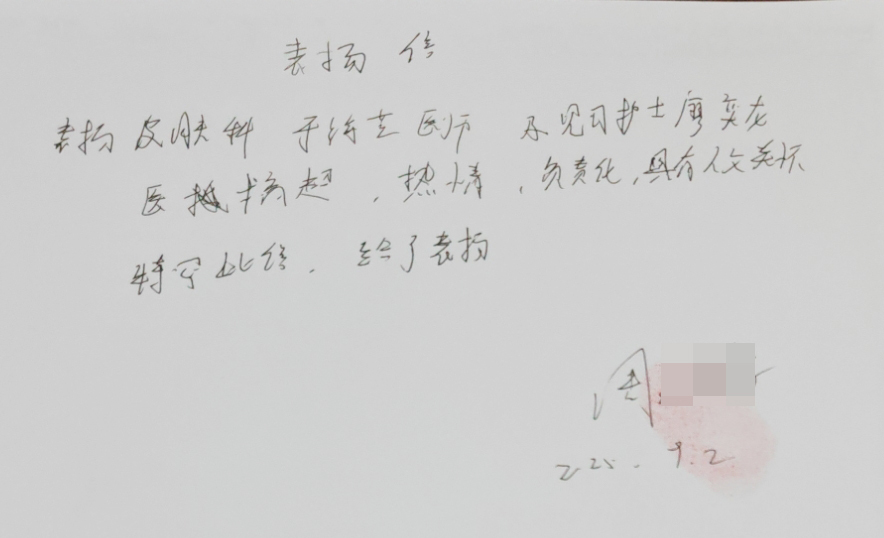 表扬信
表扬皮肤科 于 医师 及见习护士廖奕龙
医 精超，热情，负责化，具有人文关怀
特写此信，给了表扬
周
225.9.2